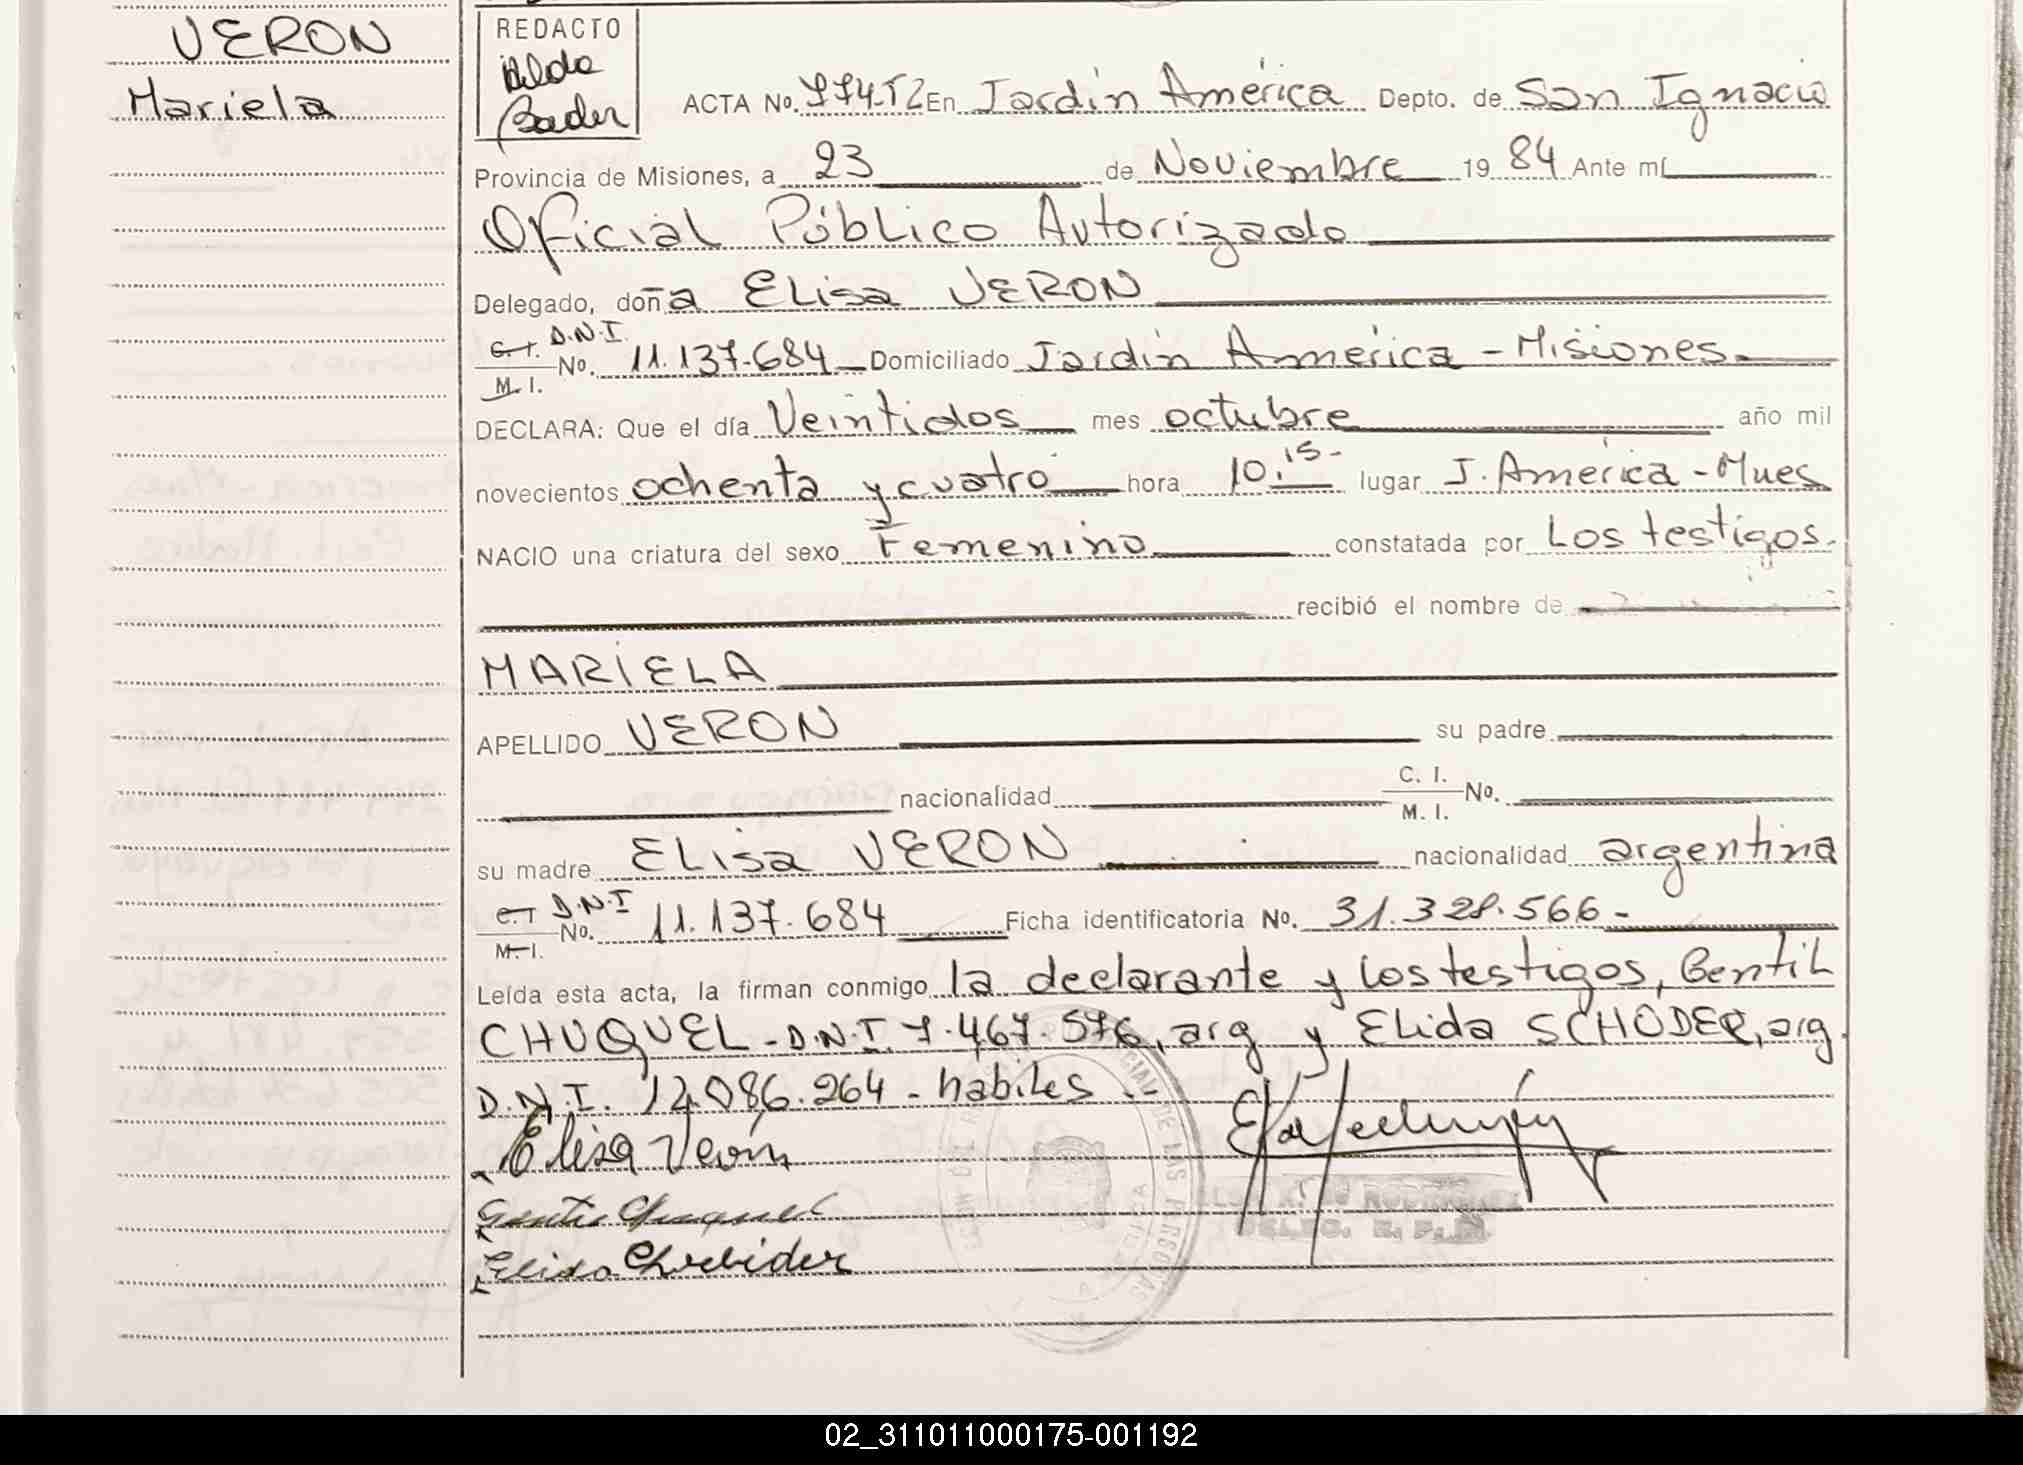 VERON
Mariela
REDACTO
Hilda
Bader
ACTA No. 774-T2 En Jardín América Depto. de San Ignacio
Provincia de Misiones, a 23 de Noviembre 1984 Ante mí
Oficial Público Autorizado
Delegado, doña Elisa VERON
C.I. D.N.I.
M.I. No. 11.137.684 Domiciliado Jardín América - Misiones.
DECLARA: Que el día Veintidos mes octubre año mil
novecientos ochenta y cuatro hora 10.15- lugar J. América - Mnes
NACIO una criatura del sexo Femenino constatada por Los testigos.
recibió el nombre de
MARIELA
APELLIDO VERON su padre
nacionalidad C. I. No.
M. I.
su madre Elisa VERON nacionalidad argentina
C.I D.N.I
M.I. No. 11.137.684 Ficha identificatoria No. 31.328.566-
Leída esta acta, la firman conmigo la declarante y los testigos, Gentil
CHUQUEL - D.N.I. 7.467.576, arg y Elida SCHODER, arg.
D.N.I. 12.086.264 - habiles.-
Elisa Verón
DELEG. R. P.
02_311011000175-001192